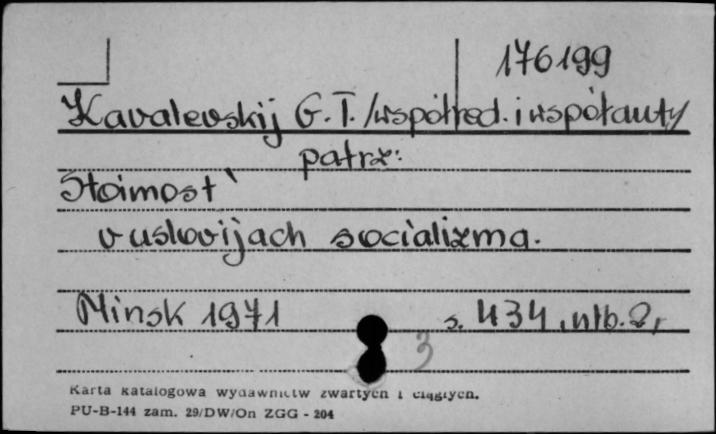 176199
Kavalevskij G.T. /współred. i współauty/
patrz:
Stoimost'
v uslovijach socializma.
Minsk 1971 s. 434, nlb. 2,
3
Karta katalogowa wydawnictw zwartych i ciągłych.
PU-B-144 zam. 29/DW/On ZGG - 204